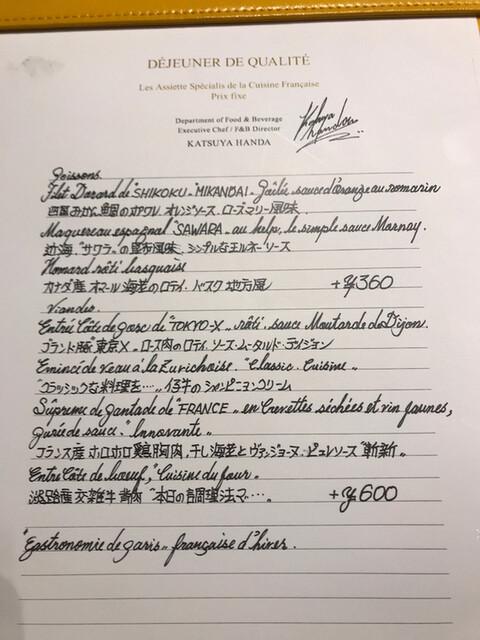 DÉJEUNER DE QUALITÉ
Les Assiette Spécialis de la Cuisine Française
Prix fixe
Department of Food & Beverage
Executive Chef / F&B Director
KATSUYA HANDA
Katsuya Handa
Poissons.
Filet Daurad de "SHIKOKU-MIKANDAI" Poêlée sauce d'Orange au romarin
四国みかん鯛のポワレ オレンジソース ローズマリー風味
Maquereau espagnol "SAWARA" au kelp, le simple sauce Mornay.
近海 "サワラ" の昆布風味 シンプルなモルネーソース
Homard rôti basquais
カナダ産 オマール海老のロティ バスク地方風 +¥360
Viandes.
Entré Côte de porc de "TOKYO-X" rôti, sauce Moutarde de Dijon.
ブランド豚 "東京X" ロース肉のロティ ソース・ムータルド・ディジョン
Emincé de veau à la Zurichoise. "Classic Cuisine"
"クラッシックな料理を…" 仔牛のシャンピニョンクリーム
Suprême de pantade de "FRANCE" en Crevettes séchées et vin jaunes,
purée de sauce. "Innovante"
フランス産 ホロホロ鶏胸肉、干し海老とヴァンジョーヌ・ピュレソース "斬新"
Entre Côte de boeuf, "Cuisine du jour"
淡路産 交雑牛 背肉 "本日の調理法で…" +¥600
"Gastronomie de Paris" française d'hiver.